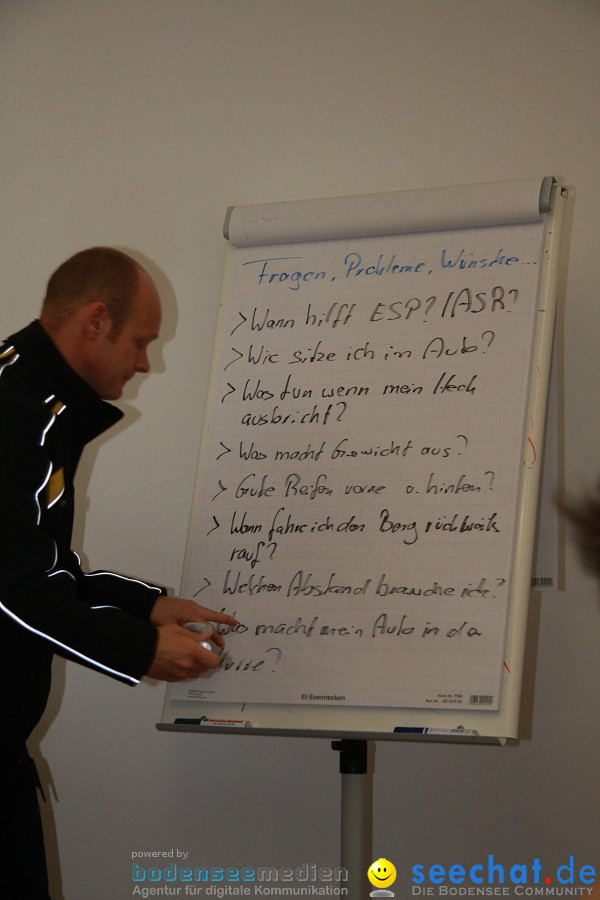 Fragen, Probleme, Wünsche...
> Wann hilft ESP? / ASR?
> Wie sitze ich im Auto?
> Was tun wenn mein Heck
ausbricht?
> Was macht Gewicht aus?
> Gute Reifen vorne o. hinten?
> Wann fahre ich den Berg rückwärts
rauf?
> Welchen Abstand brauche ich?
> Was macht mein Auto in da
Kurve?
Soennecken
powered by
bodenseemedien
Agentur für digitale Kommunikation
seechat.de
Die Bodensee Community